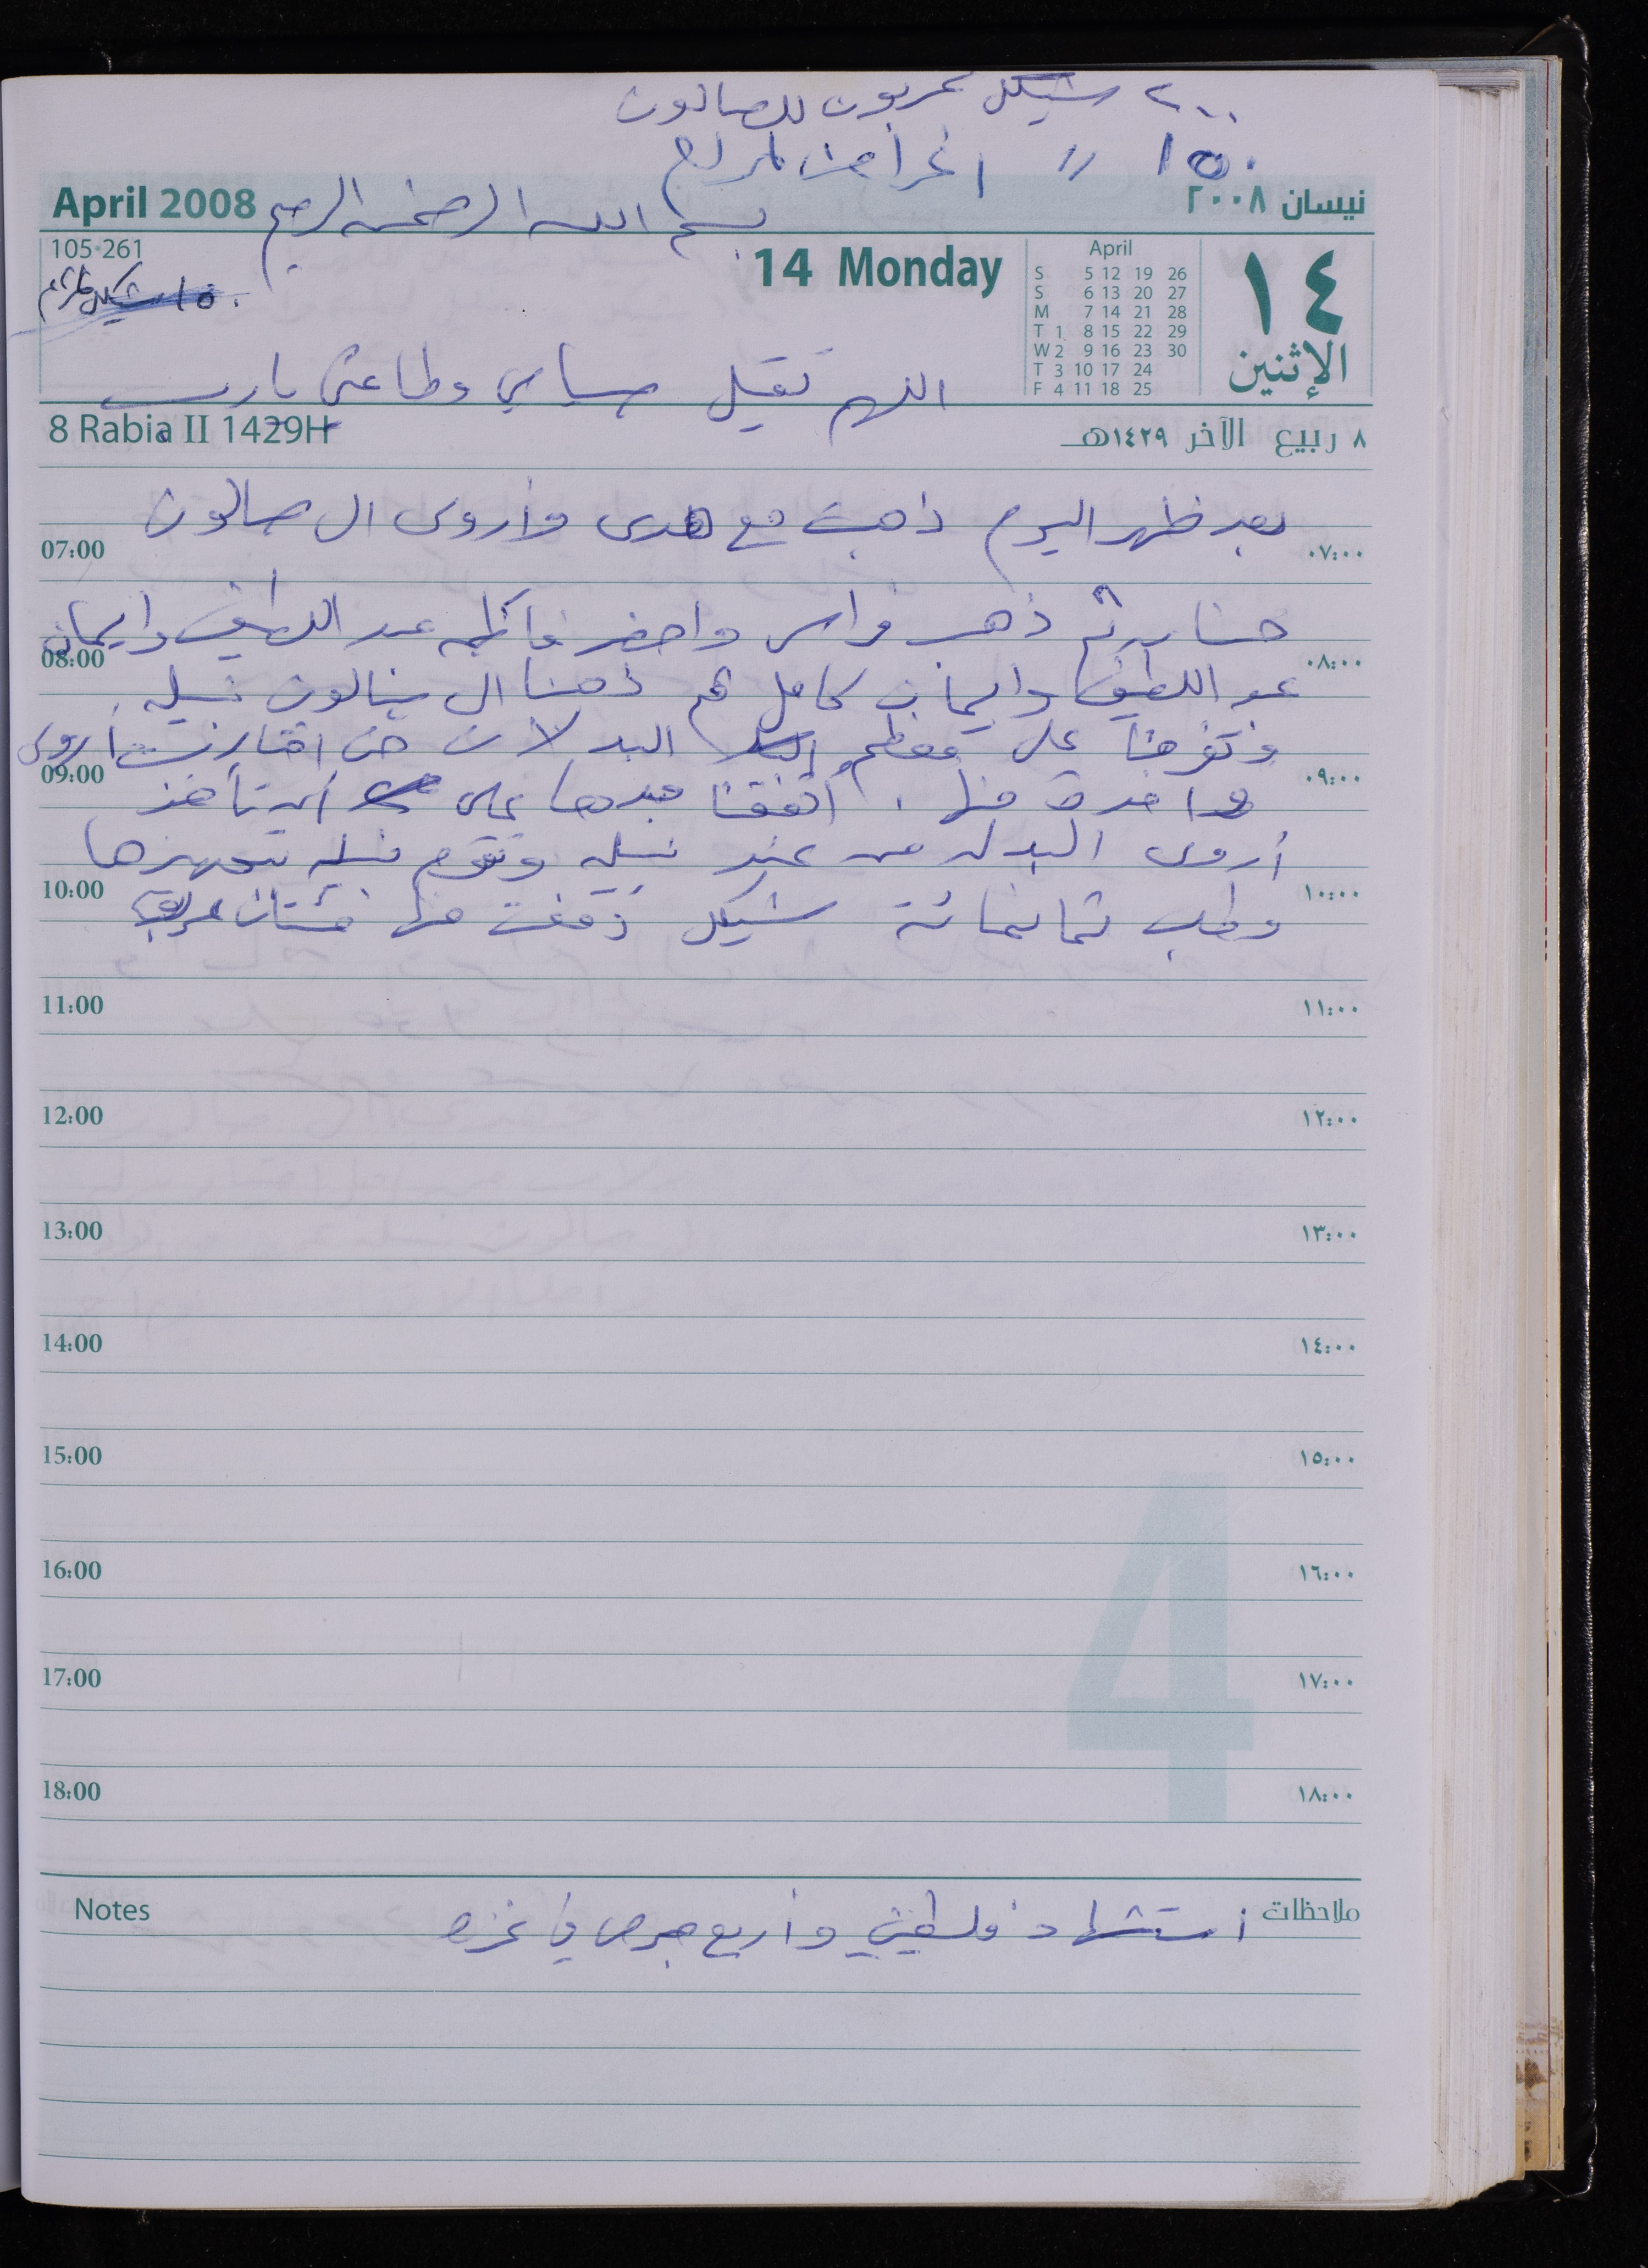 ٢٠٠ شيكل عربون للصالون
١٥٠ " أغراض
April 2008
بسم الله الرحمن الرحيم
نيسان ٢٠٠٨
105-261
14 Monday
April
S 5 12 19 26
S 6 13 20 27
M 7 14 21 28
T 1 8 15 22 29
W 2 9 16 23 30
T 3 10 17 24
F 4 11 18 25
١٤
الإثنين
١٥٠ شيكل
اللهم تقبل صيامي وطاعتي يا رب
8 Rabia II 1429H
٨ ربيع الآخر ١٤٢٩هـ
بعد ظهر اليوم ذهبت مع هدى وأروى ال صالون
07:00 ٠٧:٠٠
ثم ذهب فراس واحضر فاطمه عبد اللطيف وايمان
08:00 ٠٨:٠٠
عبد اللطيف وايمان كامل ثم ذهبنا ال صالون نبيله
وتفرجنا على معظم البدلات حتى اختارت أروى
09:00 ٠٩:٠٠
واحدة منها . أتفقنا بعدها على أن تأخذ
أروى البدله من عند نبيله وتقوم نبيله بتجهيزها
10:00 ١٠:٠٠
وطلب ثمانمائة شيكل دفعت منها مئتان عربون
11:00 ١١:٠٠
12:00 ١٢:٠٠
13:00 ١٣:٠٠
14:00 ١٤:٠٠
15:00 ١٥:٠٠
16:00 ١٦:٠٠
17:00 ١٧:٠٠
18:00 ١٨:٠٠
4
Notes ملاحظات
أستشهاد فلسطيني وأربع جرحى في غزه